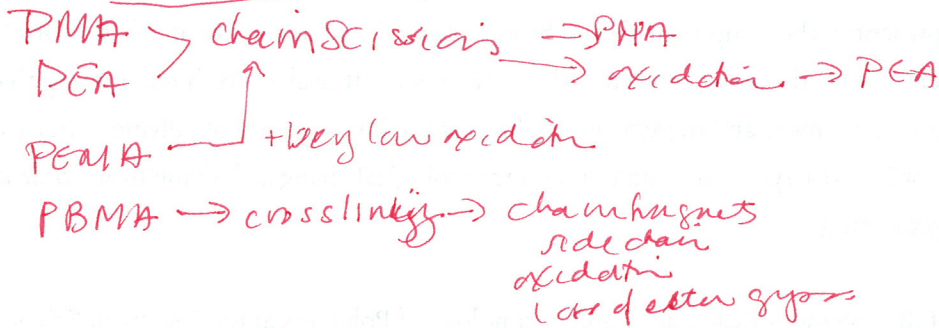 PMA > chain scission → PMA
PEA → oxidation → PEA
PEMA + very low oxidation
PBMA → crosslinking → chain fragments
side chain
oxidation
loss of ester groups